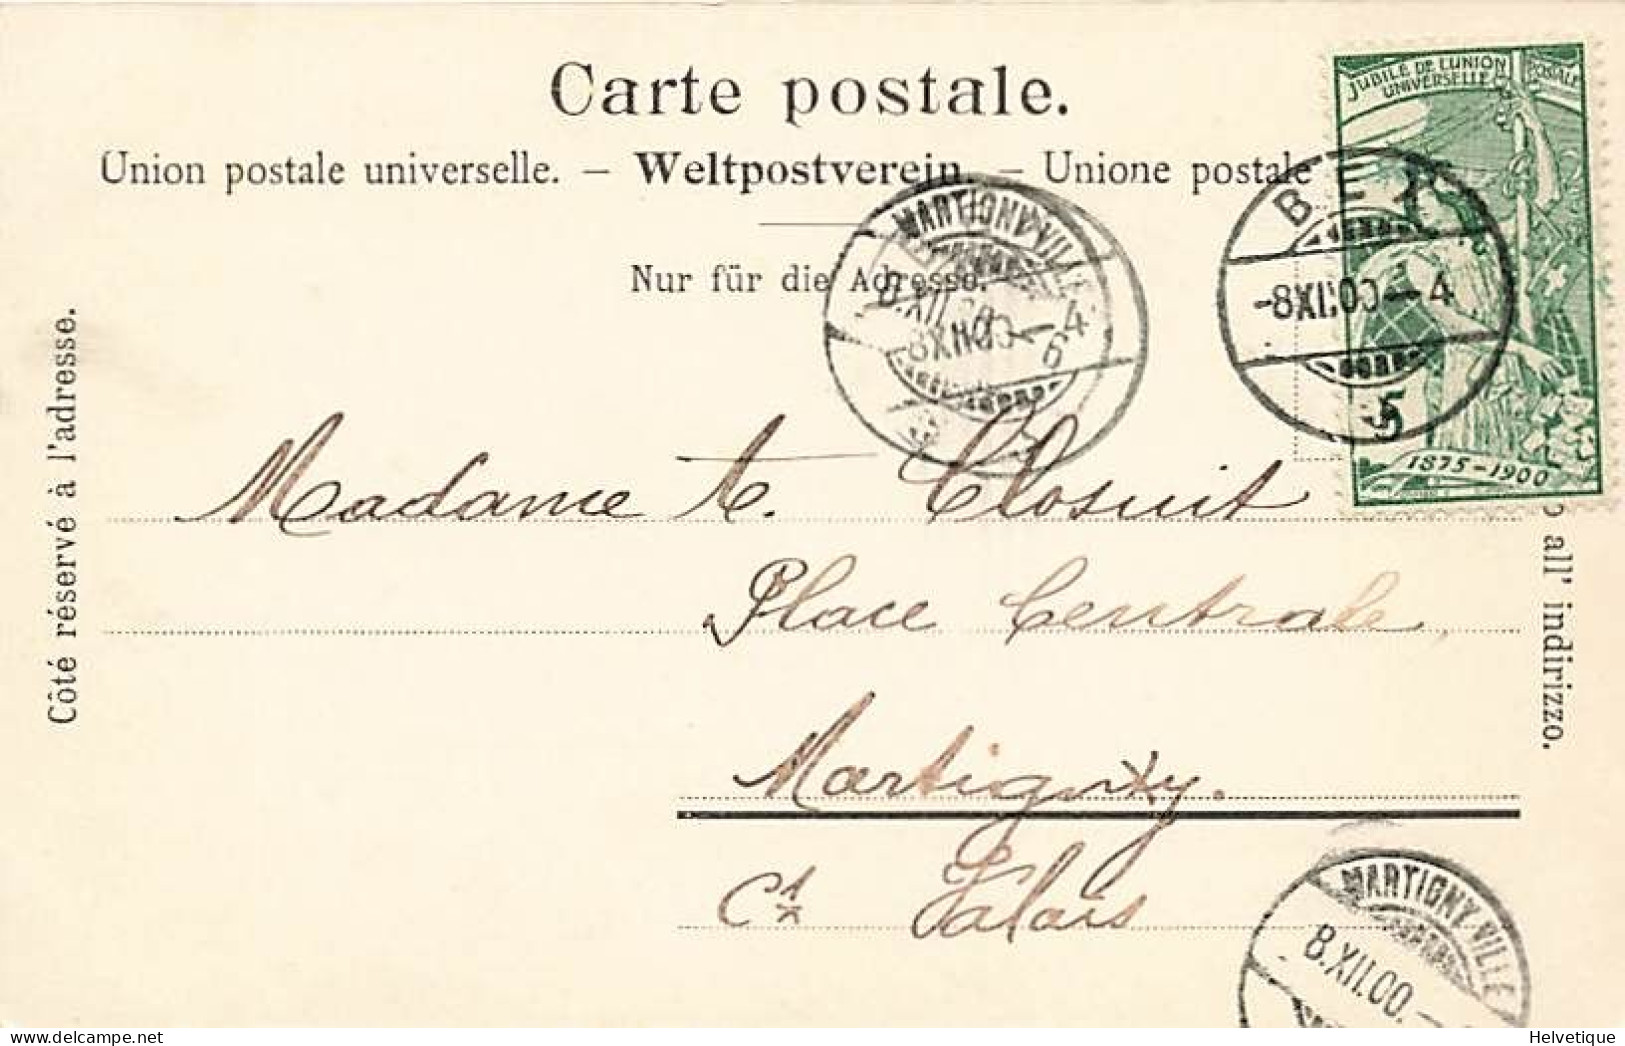 Carte postale.
Union postale universelle. – Weltpostverein. – Unione postale
Nur für die Adresse.
Côté réservé à l'adresse.
all' indirizzo.
JUBILÉ DE L'UNION POSTALE
UNIVERSELLE
1875–1900
BEX
-8XII.00–4
MARTIGNY-VILLE
8.XII.00–4
8XII.00–6
Madame A. Closuit
Place Centrale
Martigny.
Ct Valais
MARTIGNY-VILLE
8.XII.00.–
delcampe.net
Helvetique